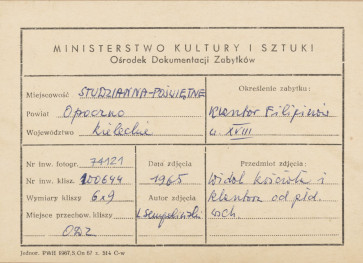 MINISTERSTWO KULTURY I SZTUKI
Ośrodek Dokumentacji Zabytków
Miejscowość STUDZIANNA-POŚWIĘTNE
Powiat Opoczno
Województwo kieleckie
Określenie zabytku:
Klasztor Filipinów
w. XVIII
Nr inw. fotogr. 74121
Nr inw. klisz. 100644
Wymiary kliszy 6x9
Miejsce przechow. kliszy
ODZ
Data zdjęcia
1965
Autor zdjęcia
Przedmiot zdjęcia:
Widok kościoła i
klasztoru od płd.
wsch.
Jednost. PWH 5567/3 Oz 67 z. 514 C-w